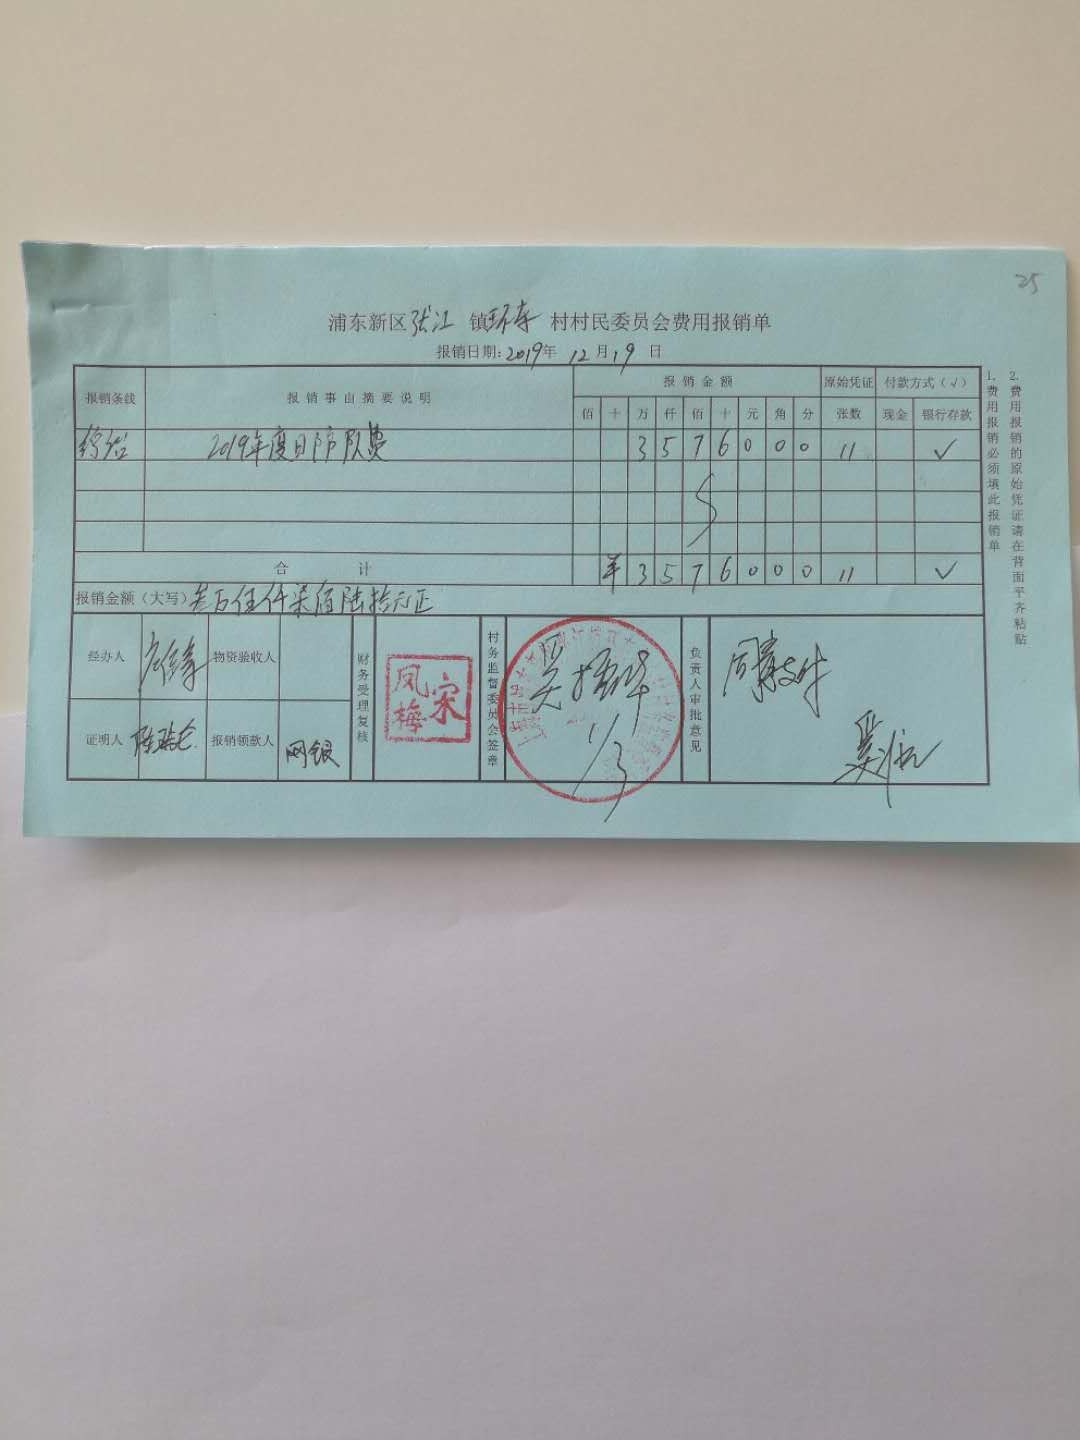 25
浦东新区张江 镇环东 村村民委员会费用报销单
报销日期:2019年 12月19日
报销条线 报销事由摘要说明 报销金额 原始凭证 付款方式(√)
佰 十 万 仟 佰 十 元 角 分 张数 现金 银行存款
综治 2019年度日防队费 3 5 7 6 0 0 0 11 √
合计 ¥ 3 5 7 6 0 0 0 11 √
报销金额(大写)叁万伍仟柒佰陆拾元正
经办人 物资验收人
证明人 报销领款人 网银
财务受理复核
宋凤梅
村务监督委员会签章
1/3
负责人审批意见
1. 费用报销必须填此报销单
2. 费用报销的原始凭证请在背面平齐粘贴